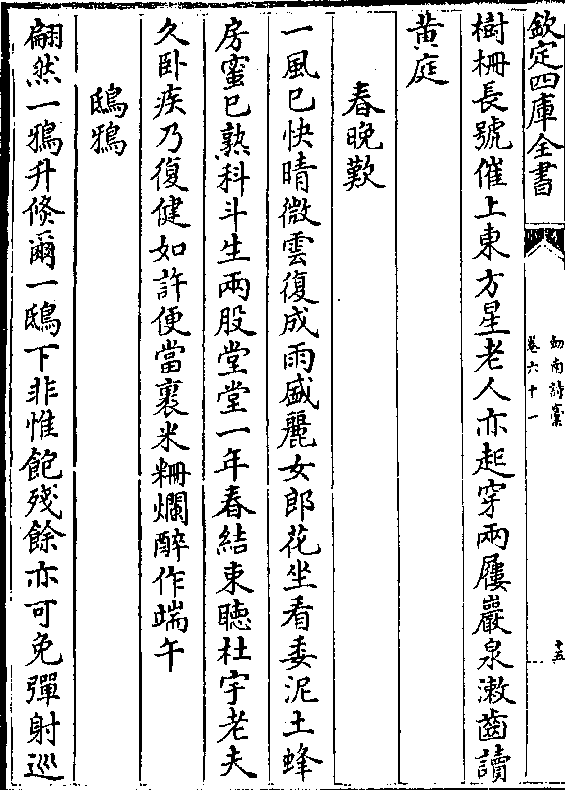 欽定四庫全書
劍南詩藁
卷六十一
十五
樹柵長號催上東方星老人亦起穿兩屨巖泉漱齒讀
黄庭
春晚歎
一風已快晴微雲復成雨盛麗女郎花坐看委泥土蜂
房蜜已熟科斗生兩股堂堂一年春結束聴杜宇老夫
久卧疾乃復健如許便當裹米粣爛醉作端午
鴟鴉
翩然一鴉升倐爾一鴟下非惟飽殘餘亦可免彈射巡